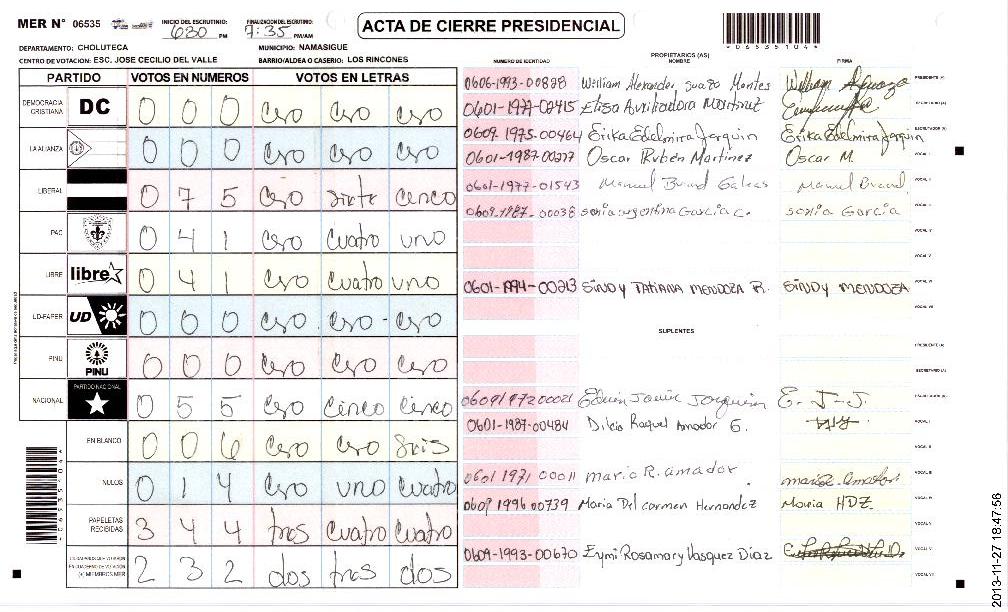 MER N° 06535 INICIO DEL ESCRUTINIO: 630 PM FINALIZACION DEL ESCRUTINIO: 7:35 PM/AM ACTA DE CIERRE PRESIDENCIAL
*06535104*
DEPARTAMENTO: CHOLUTECA MUNICIPIO: NAMASIGUE
CENTRO DE VOTACION: ESC. JOSE CECILIO DEL VALLE BARRIO/ALDEA O CASERIO: LOS RINCONES
PARTIDO VOTOS EN NUMEROS VOTOS EN LETRAS
DEMOCRACIA CRISTIANA DC 0 0 0 Cero Cero Cero
LA ALIANZA 0 0 0 Cero Cero Cero
LIBERAL 0 7 5 Cero siete cenco
PAC 0 4 1 Cero Cuatro uno
LIBRE libre 0 4 1 Cero Cuatro uno
UD-FAPER UD 0 0 0 Cero Cero Cero
PINU PINU 0 0 0 Cero Cero Cero
NACIONAL PARTIDO NACIONAL 0 5 5 Cero Cinco Cinco
EN BLANCO 0 0 6 Cero Cero Seis
NULOS 0 1 4 Cero uno Cuatro
PAPELETAS RECIBIDAS 3 4 4 tres Cuatro Cuatro
CIUDADANOS QUE VOTARON EN CUADERNO DE VOTACION (+) MIEMBROS MER 2 3 2 dos tres dos
PROPIETARIOS (AS)
NUMERO DE IDENTIDAD NOMBRE FIRMA
0606-1993-00828 William Alexander Suazo Montes PRESIDENTE (A)
0601-1977-02415 Elisa Auxiliadora Martinez SECRETARIO (A)
0609 1975-00464 Erika Edelmira Jorquin Erika Edelmira Jorquin ESCRUTADOR (A)
0601-1987-00277 Oscar Ruben Martinez Oscar M. VOCAL I
0601-1977-01543 Manuel Galeas Manuel VOCAL II
0609-1987-00038 sonia argentina Garcia c. sonia Garcia VOCAL III
VOCAL IV
VOCAL V
0601-1994-00213 SINDY TATIANA MENDOZA R. SINDY MENDOZA VOCAL VI
VOCAL VII
SUPLENTES
PRESIDENTE (A)
SECRETARIO (A)
0609197200021 Edwin Javier Jorquin E. J-J. ESCRUTADOR (A)
0601-1987-00484 Dilcia Raquel Amador G. VOCAL I
VOCAL II
0601 1971 00011 maria R. amador maria R. amador VOCAL III
0609 1996 00739 Maria Del carmen Hernandez Maria HDZ. VOCAL IV
VOCAL V
0609-1993-00670 Eymi Rosamary Vasquez Diaz VOCAL VI
VOCAL VII
2013-11-27 18:47:56